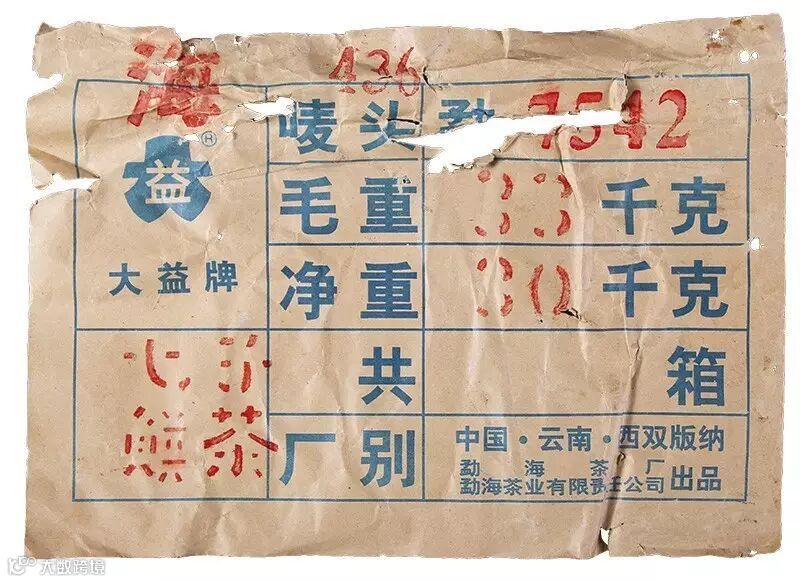 海 436
唛头 勐 7542
益 ®
大益牌
毛重 33 千克
净重 30 千克
七子
餅茶
共 箱
厂别
中国·云南·西双版纳
勐海茶厂
勐海茶业有限责任公司 出品
大数跨境